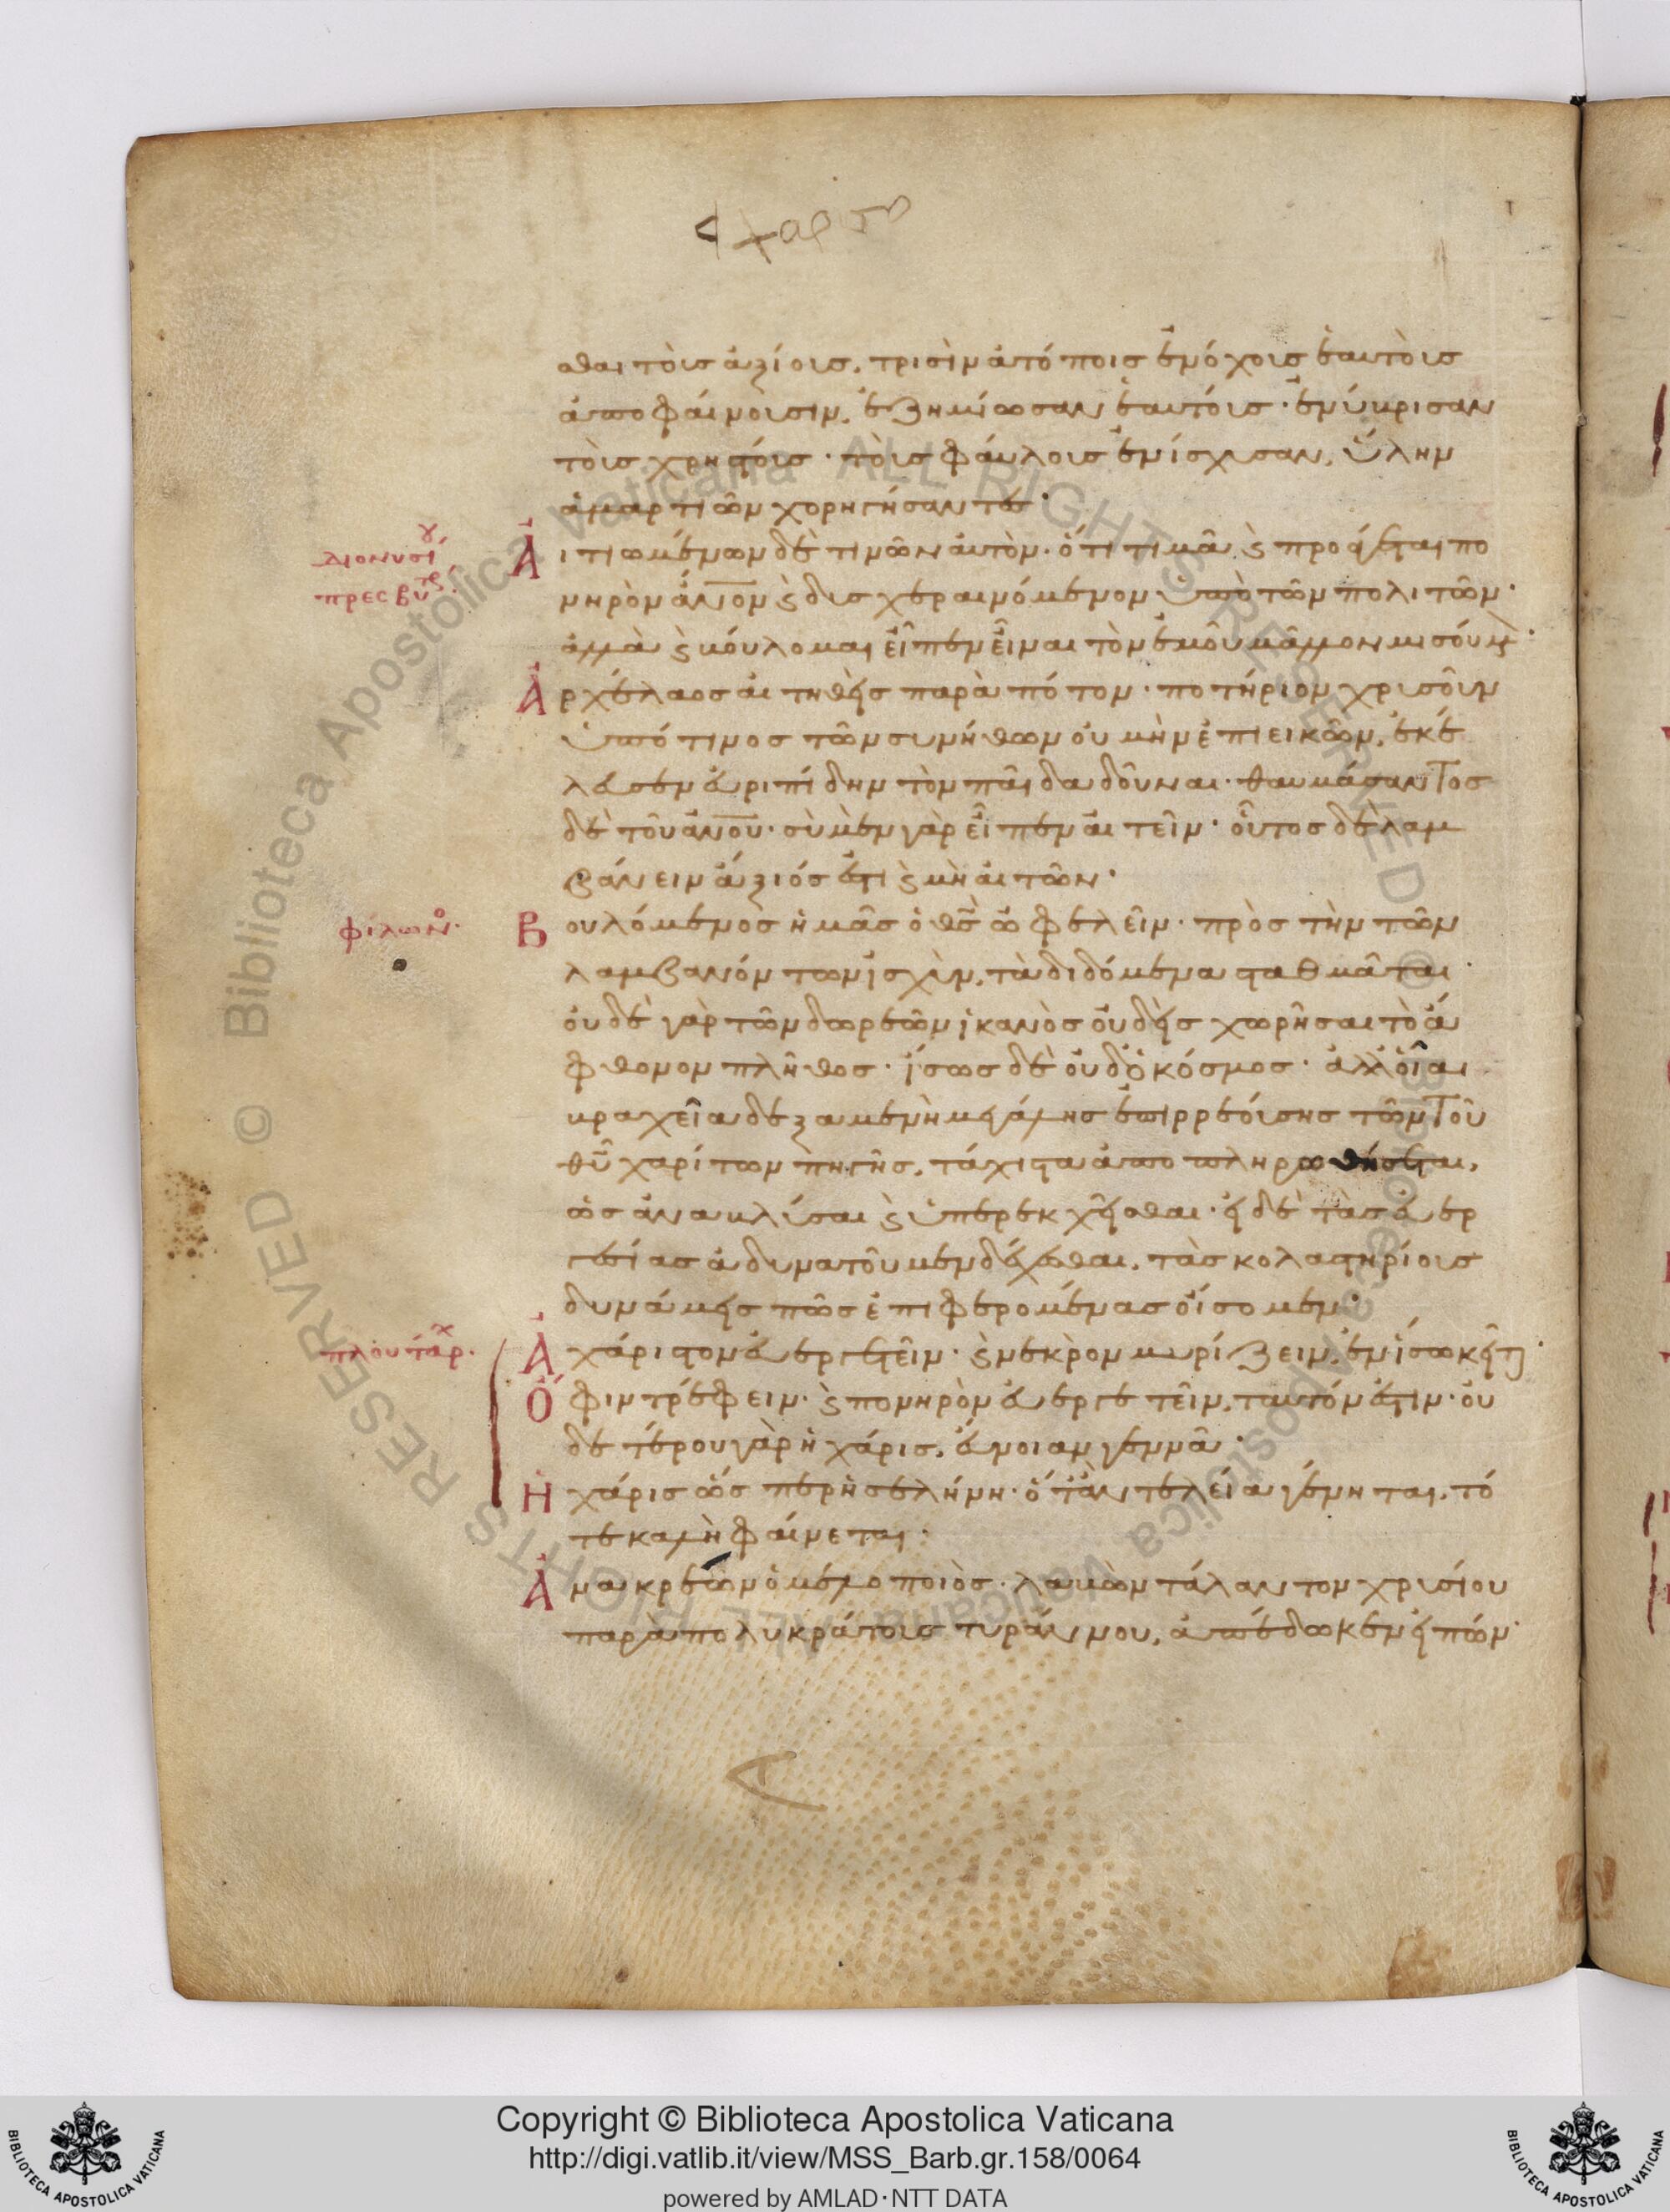 σθαι τοῖς ἀξίοις, τρισὶν ἀτόποις ἐνόχους ἑαυτοὺς
ἀποφαίνουσιν, ἐζημίωσαν ἑαυτούς· ἐνύβρισαν
τοὺς χρηστούς· τοὺς φαύλους ἐνίσχυσαν, ὕλην
ἁμαρτιῶν χορηγήσαντες·
Διονυσίου
πρεσβυτερ
Αἰτιωμένων δέ τινων αὐτὸν· ὅτι τιμᾶ ϗ προάγεται πο
νηρὸν ἄνον ϗ δυσχεραινόμενον ὑπὸ τῶν πολιτῶν·
ἀλλὰ ϗ βούλομαι εἶπεν εἶναι τὸν ἐμοῦ μᾶλλον μισούμενον·
Ἀρχέλαος αἰτηθεὶς παρὰ πότον· ποτήριον χρυσοῦν
ὑπό τινος τῶν συνήθων οὐ μὴν ἐπιεικῶν, ἐκέ
λευσεν εὐριπίδην τὸν παῖδα δοῦναι· θαυμάσαντος
δὲ τοῦ ἀνου· σὺ μὲν γὰρ εἶπεν αἰτεῖν· οὗτος δὲ λαμ
βάνειν ἄξιός ἐστι ϗ μὴ αἰτῶν·
φίλων·
Βουλόμενος ἡμᾶς ὁ θς ὠφελεῖν· πρὸς τὴν τῶν
λαμβανόντων ἰσχὺν, τὰ διδόμενα σταθμᾶται·
οὐδὲ γὰρ τῶν δωρεῶν ἱκανὸς οὐδεὶς χωρῆσαι τὸ ἄ
φθονον πλῆθος· ἴσως δὲ οὐδ' ὁ κόσμος· ἀλλ' οἷα
βραχεῖα δεξαμενὴ μεγάλης ἐπιρρεούσης τῶν τοῦ
θυ χαρίτων πηγῆς, τάχιστα ἀποπληρωθήσεται,
ὡς ἀναβλύσαι ϗ ὑπερεκχεῖσθαι· εἰ δὲ τὰς εὐερ
γεσίας ἀδυνατοῦμεν δέχεσθαι, τὰς κολαστηρίους
δυνάμεις πῶς ἐπιφερομένας οἴσομεν·
πλουτάρχ·
Ἀχάριστον εὐεργετεῖν· ϗ νεκρὸν μυρίζειν, ἐν ἴσω κεῖται·
Ὄφιν τρέφειν· ϗ πονηρὸν εὐεργετεῖν, ταυτόν ἐστιν· οὐ
δετέρου γὰρ ἡ χάρις, εὔνοιαν γεννᾶ·
Ἡ χάρις ὥσπερ ἡ σελήνη· ὅταν τελεία γένηται, τό
τε καλὴ φαίνεται·
Ἀνακρέων ὁ μελοποιὸς· λαβὼν τάλαντον χρυσίου
παρὰ πολυκράτους τυράννου, ἀπέδωκεν εἰπών·
Copyright © Biblioteca Apostolica Vaticana
http://digi.vatlib.it/view/MSS_Barb.gr.158/0064
powered by AMLAD · NTT DATA
BIBLIOTECA APOSTOLICA VATICANA
BIBLIOTECA APOSTOLICA VATICANA